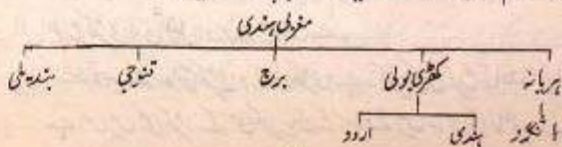 مغربی ہندی
ہریانہ کھڑی بولی برج قنوجی بندیلی
یا
ہندی اردو